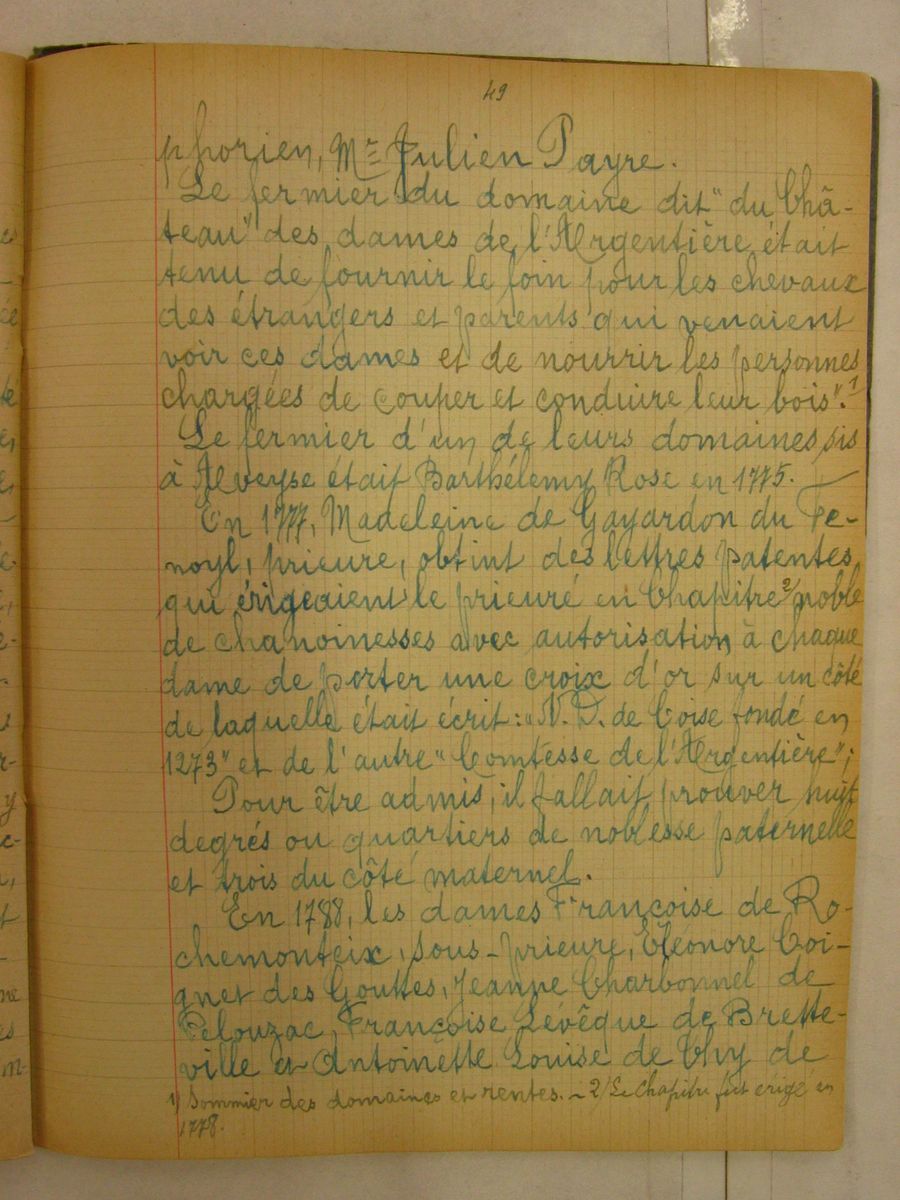 49
phorien, Mr Julien Payre.
Le fermier du domaine dit "du Châ-
teau" des dames de l'Argentière était
tenu de fournir le foin pour les chevaux
des étrangers et parents qui venaient
voir ces dames et de nourrir les personnes
chargées de couper et conduire leur bois".1
Le fermier d'un de leurs domaines sis
à Aveyse était Barthélemy Rose en 1775.
En 1777, Madeleine de Gayardon du Fe-
noyl, prieure, obtint des lettres patentes
qui érigeaient le prieuré en Chapitre 2/ noble
de chanoinesses avec autorisation à chaque
dame de porter une croix d'or sur un côté
de laquelle était écrit: "N. D. de Coise fondé en
1273" et de l'autre "Comtesse de l'Argentière";
Pour être admis, il fallait prouver huit
degrés ou quartiers de noblesse paternelle
et trois du côté maternel.
En 1788, les dames Françoise de Ro-
chemonteix, sous-prieure, Eléonore Coi-
gnet des Gouttes, Jeanne Charbonnel de
Pelouzac, Françoise Lévêque de Brette-
ville et Antoinette Louise de Thy de
1) Sommier des domaines et rentes. - 2/ Le Chapitre fut érigé en
1778.